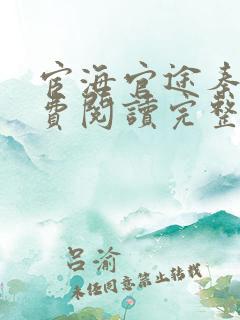 宦海官途秦
費閱讀完整
呂渝
未经同意禁止转载